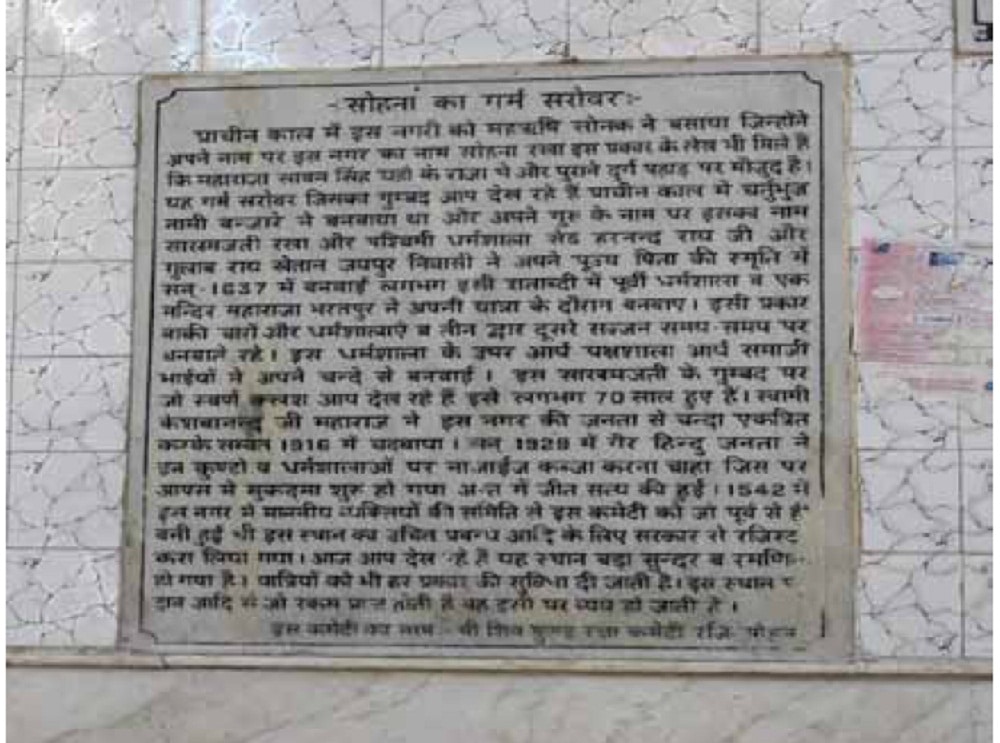 -ः सोहनां का गर्म सरोवर ः-
प्राचीन काल में इस नगरी को महऋषि सोनक ने बसाया जिन्होंने
अपने नाम पर इस नगर का नाम सोहना रखा इस प्रकार के लेख भी मिले है
कि महाराजा सावन सिंह यहां के राजा थे और पुराने दुर्ग पहाड़ पर मौजूद है।
यह गर्म सरोवर जिसका गुम्बद आप देख रहे हैं प्राचीन काल में चर्तुभुज
नामी बन्जारे ने बनवाया था और अपने गुरू के नाम पर इसका नाम
साखमजती रखा और पश्चिमी धर्मशाला सेठ हरनन्द राय जी और
गुलाब राय खेतान जयपुर निवासी ने अपने पूज्य पिता की स्मृति में
सन् 1637 में बनवाई लगभग इसी शताब्दी में पूर्वी धर्मशाला व एक
मन्दिर महाराजा भरतपुर ने अपनी यात्रा के दौरान बनवाए। इसी प्रकार
बाकी चारों और धर्मशालाऐं व तीन द्वार दूसरे सज्जन समय-समय पर
बनवाते रहे। इस धर्मशाला के उपर आर्य यज्ञशाला आर्य समाजी
भाईयों ने अपने चन्दे से बनवाई। इस साखमजती के गुम्बद पर
जो स्वर्ण कलश आप देख रहे हैं इसे लगभग 70 साल हुए हैं। स्वामी
केशवानन्द जी महाराज ने इस नगर की जनता से चन्दा एकत्रित
करके सम्वत 1916 में चढवाया। सन् 1928 में गैर हिन्दु जनता ने
इन कुण्डो व धर्मशालाओं पर नाजाईज कब्जा करना चाहा जिस पर
आपस मे मुकदमा शुरू हो गया अन्त में जीत सत्य की हुई। 1542 में
इस नगर मे माननीय व्यक्तियों की समिति से इस कमेटी को जो पूर्व से ही
बनी हुई थी इस स्थान का उचित प्रबन्ध आदि के लिए सरकार से रजिस्ट
करा लिया गया। आज आप देख रहे हैं यह स्थान बड़ा सुन्दर व रमणि
हो गया है। यात्रियों को भी हर प्रकार की सुविधा दी जाती है। इस स्थान प
दान आदि से जो रकम प्राप्त होती है वह इसी पर व्यय हो जाती है।
इस कमेटी का नाम - श्री शिव कुण्ड रक्षा कमेटी रजि